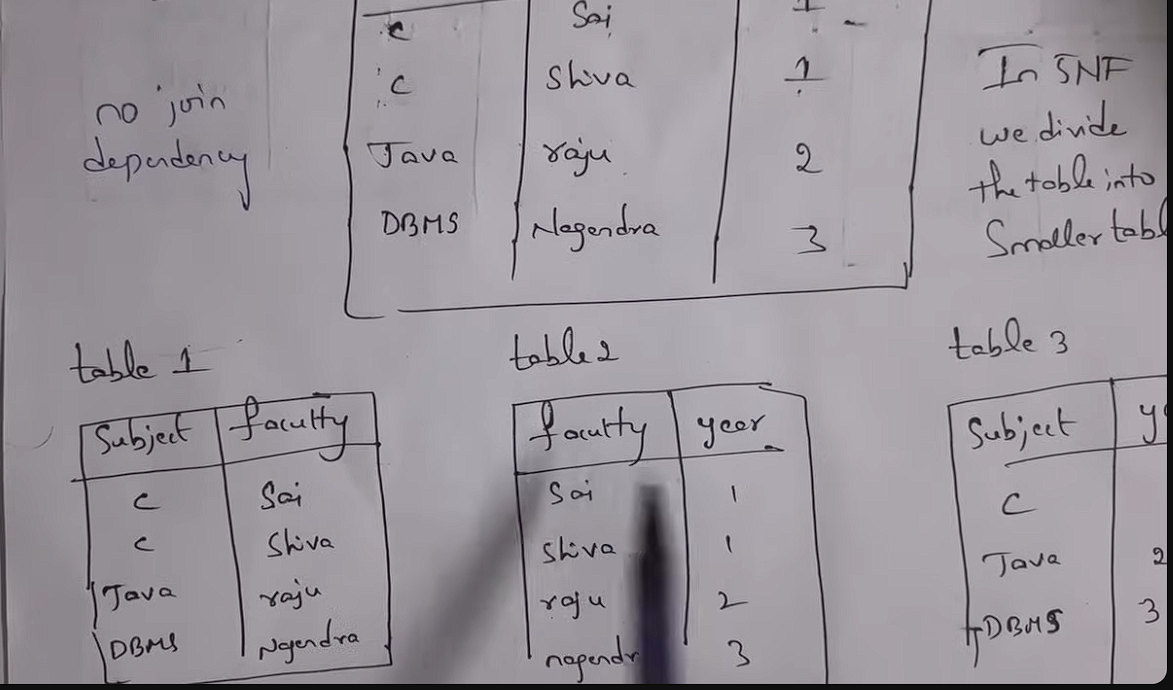 C Sai 1
C Shiva 1
Java raju 2
DBMS Nagendra 3
no join
dependency
In 5NF
we divide
the table into
Smaller tabl
table 1
Subject faculty
C Sai
C Shiva
Java raju
DBMS Nagendra
table 2
faculty year
Sai 1
shiva 1
raju 2
nagendr 3
table 3
Subject y
C
Java 2
DBMS 3